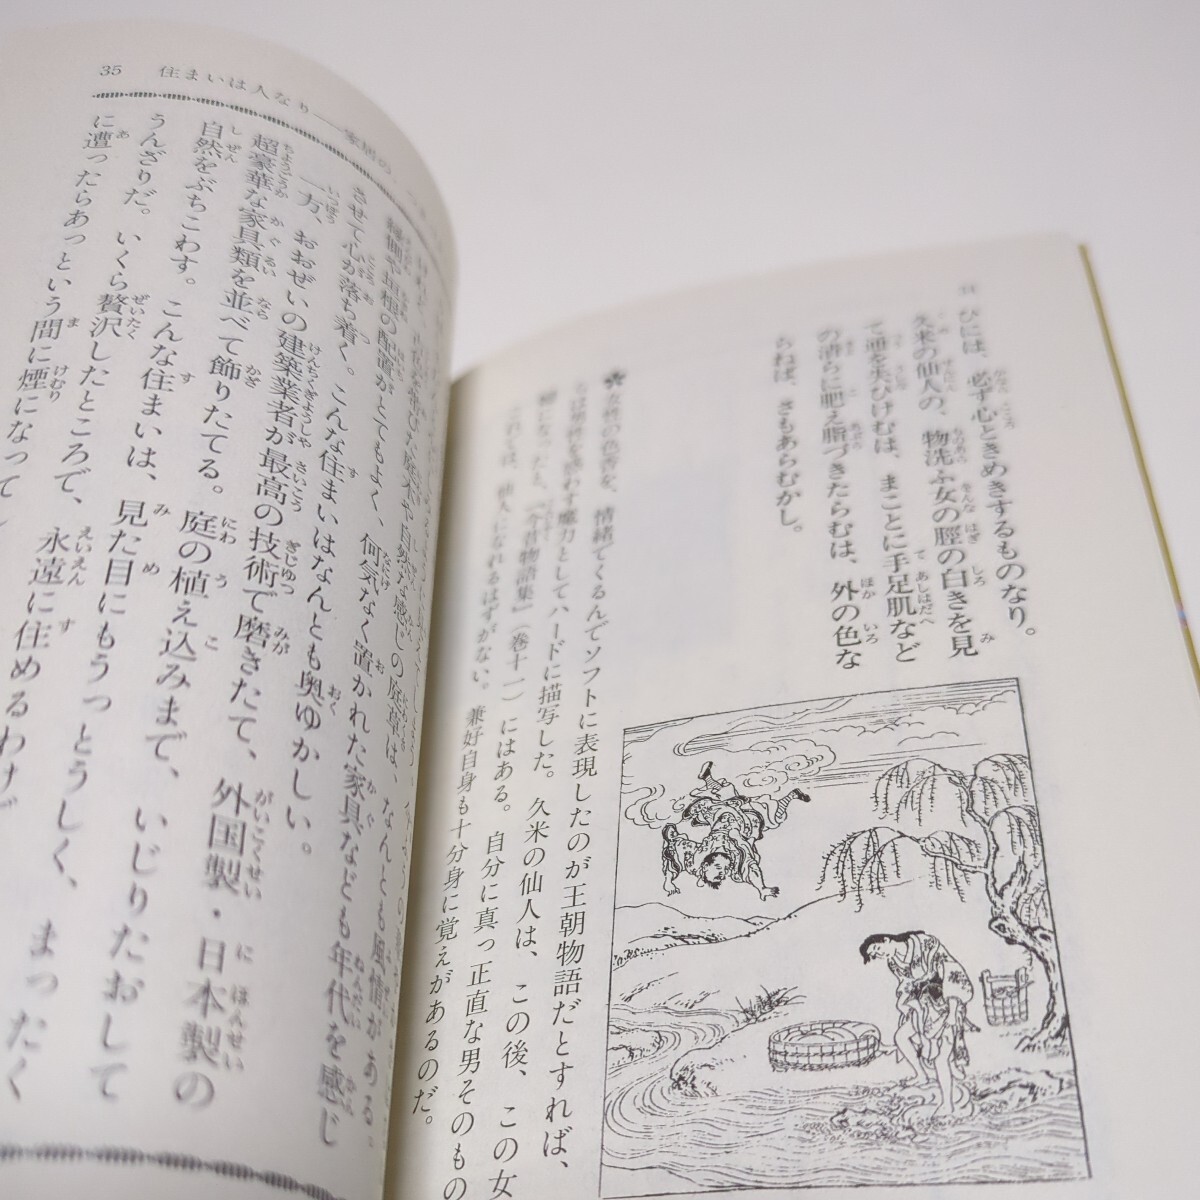 びには、必ず心ときめきするものなり。
久米の仙人の、物洗ふ女の脛の白きを見
て通を失ひけむは、まことに手足肌など
の清らに肥え脂づきたらむは、外の色な
らねば、さもあらむかし。
女性の色香を、情緒でくるんでソフトに表現したのが王朝物語だとすれば、
は男性を惑わす魔力としてハードに描写した。久米の仙人は、この後、この女
になったと、『今昔物語集』(巻十一)にはある。自分に真っ正直な男そのもの
これでは、仙人になれるはずがない。兼好自身も十分身に覚えがあるのだ。
35 住まいは人なり
の配置がとてもよく、何気なく置かれた家具なども年代を感じ
させて心が落ち着く。こんな住まいはなんとも奥ゆかしい。
一方、おおぜいの建築業者が最高の技術で磨きたて、外国製・日本製の
超豪華な家具類を並べて飾りたてる。庭の植え込みまで、いじりたおして
自然をぶちこわす。こんな住まいは、見た目にもうっとうしく、まったく
うんざりだ。いくら贅沢したところで、永遠に住めるわけ
に遭ったらあっという間に煙になって